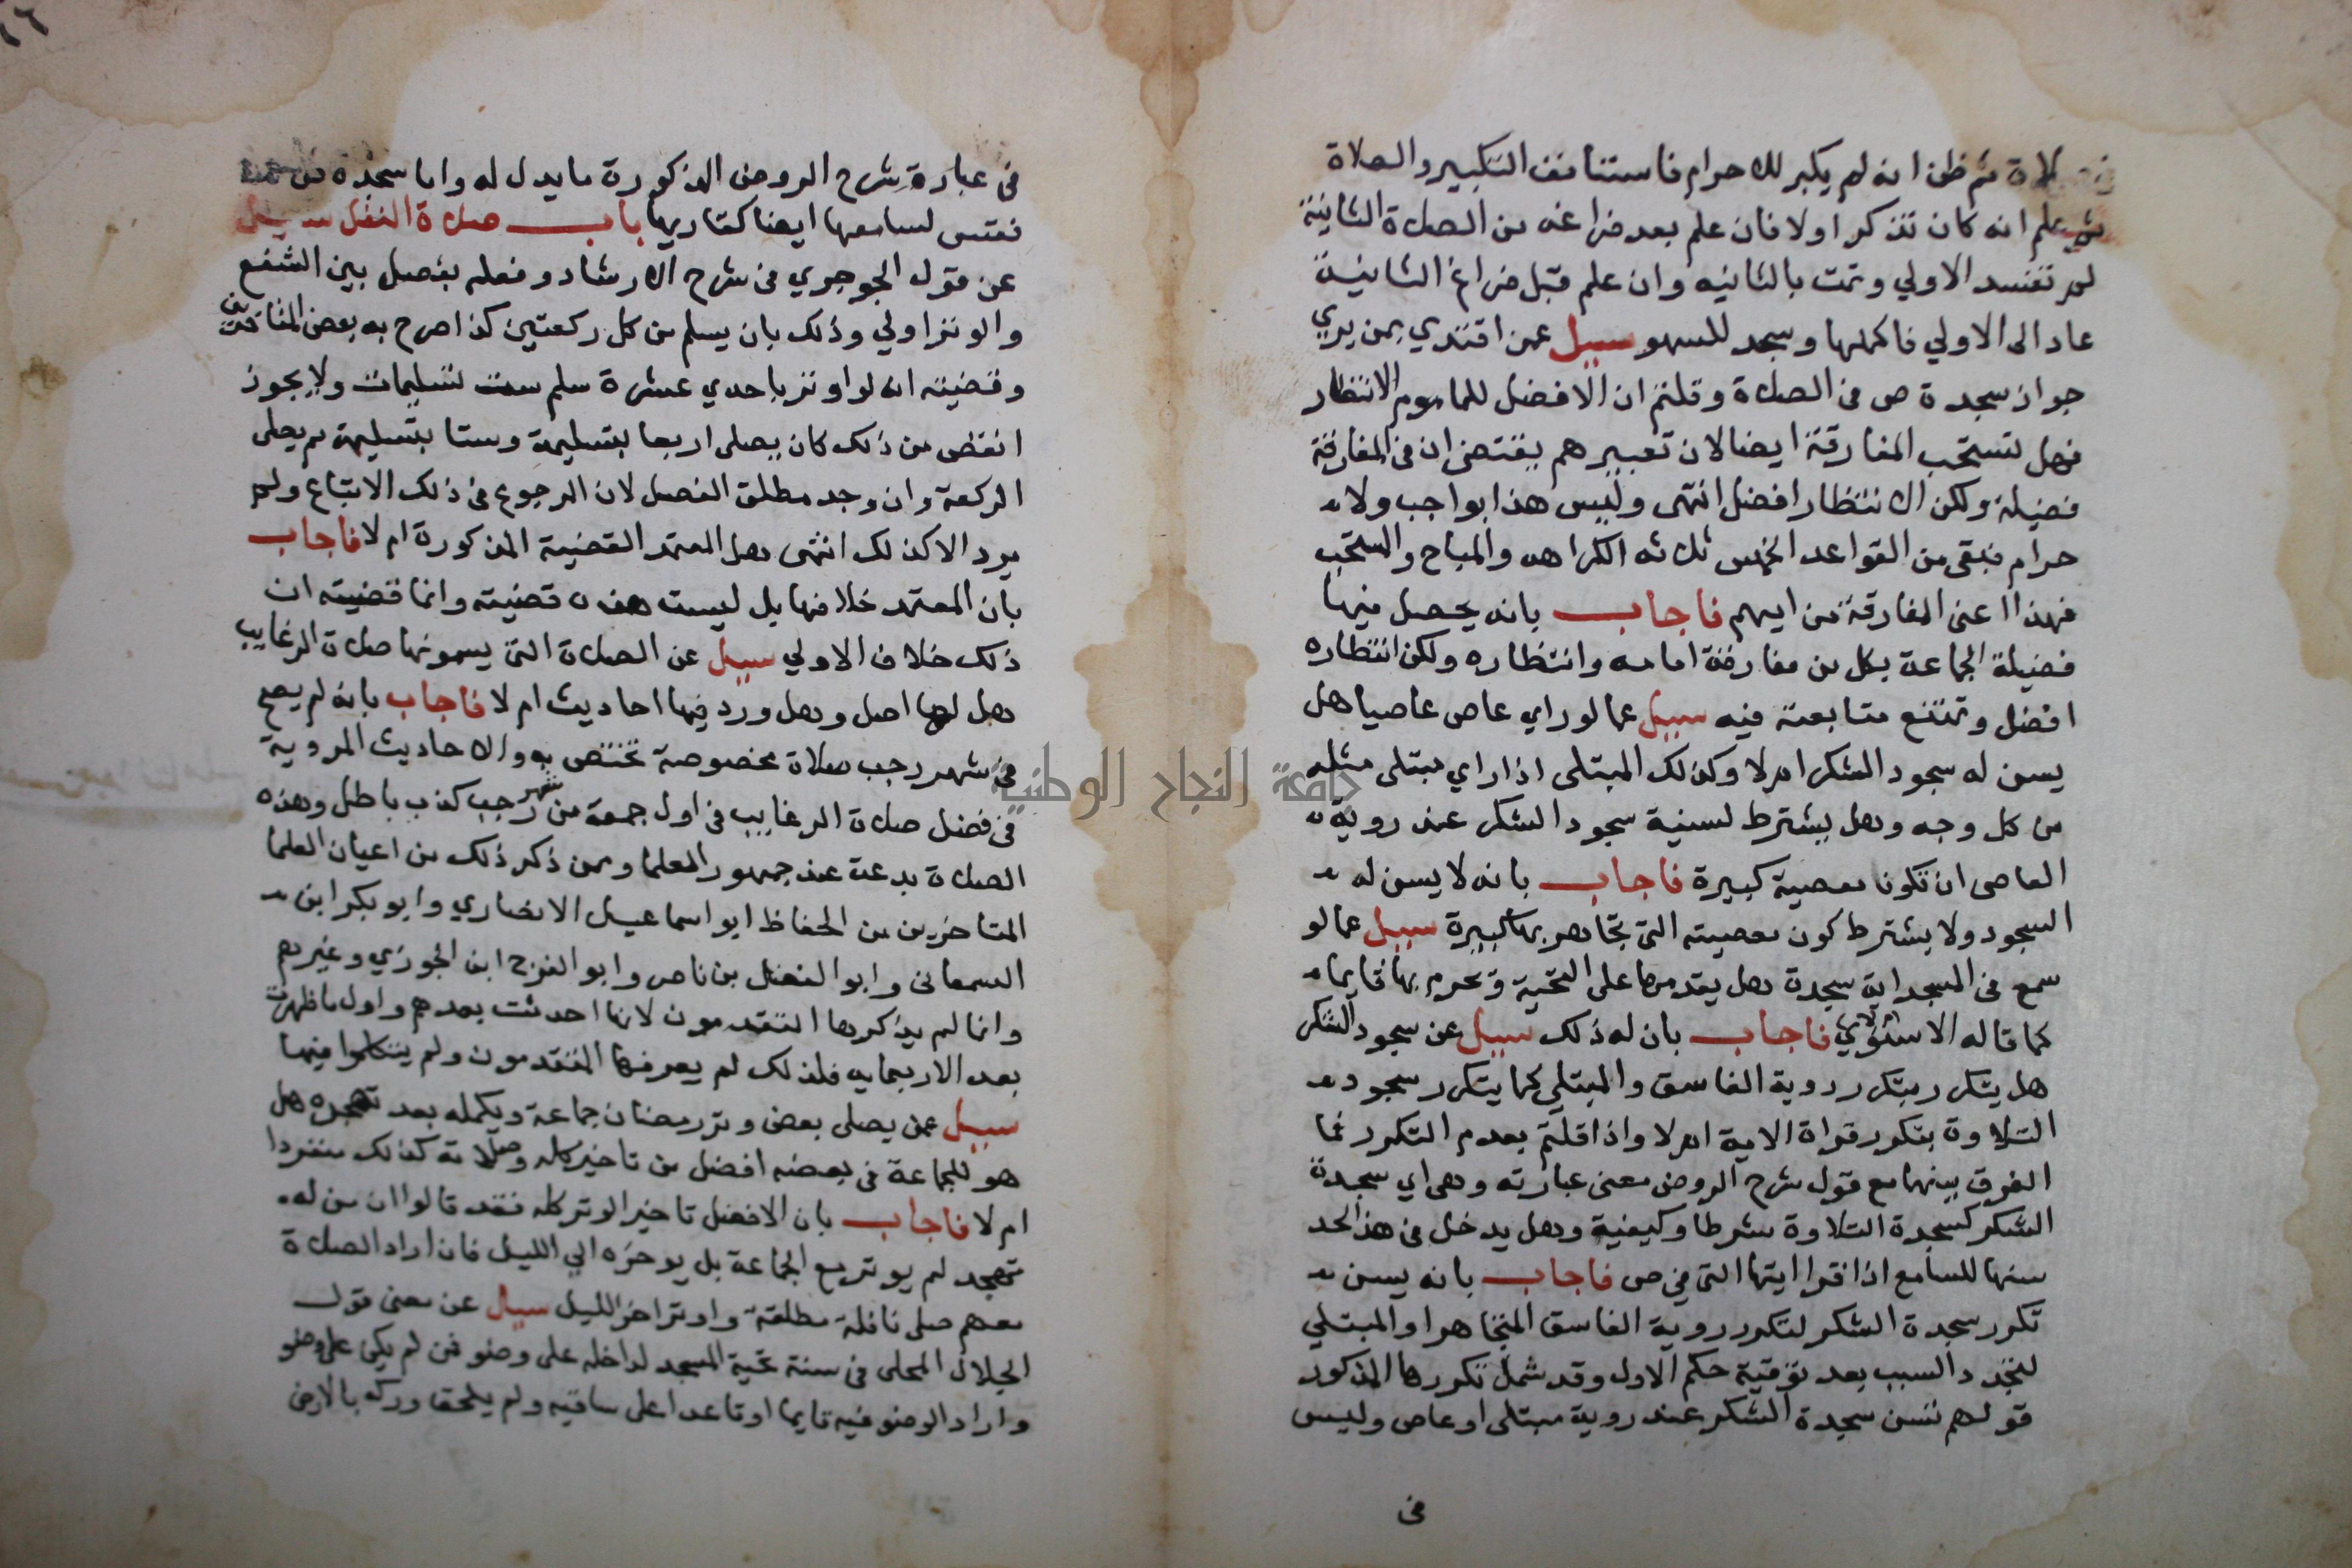 صلاة ثم ظن انه لم يكبر للاحرام فاستنانف التكبير والصلاة
ثم علم انه كان تذكر اولا فان علم بعد فراغه من الصلاة الثانية
لم تفسد الاولي وتمت بالثانيه وان علم قبل فراغ الثانية
عاد الى الاولي فاكملها وسجد للسهو سيل عمن اقتدي بمن يري
جواز سجدة ص في الصلاة وقلتم ان الافضل للماموم الانتظار
فهل تستحب المفارقة ايضا لان تعبيرهم يقتضي ان في المفارقة
فضيلة ولكن الانتظار افضل انتهى وليس هذا بواجب ولا
حرام فبقى من القواعد الخمس ثلاثه الكراهه والمباح والمستحب
فهذا اعنى المفارقة من ايهم فاجاب بانه يحصل فيها
فضيلة الجماعة بكل من مفارقة امامه وانتظاره ولكن انتظاره
افضل وتمتنع متابعته فيه سيل عما لو راي عاص عاصيا هل
يسن له سجود الشكر ام لا وكذلك المبتلى اذا راي مبتلى مثله
من كل وجه وهل يشترط لسنية سجود الشكر عند روية
العاصى ان تكون معصية كبيرة فاجاب بانه لا يسن له
السجود ولا يشترط كون معصيته التي تجاهر بها كبيرة سيل عما لو
سمع في المسجد اية سجدة هل يقدمها على التحية وتحرم بها قايما
كما قاله الاسنوي ام لا فاجاب بان له ذلك سيل عن سجود الشكر
هل يتكرر بتكرر روية الفاسق والمبتلى كما يتكرر سجود
التلاوة بتكرر قراة الاية ام لا واذا قلتم بعدم التكرر فما
الفرق بينهما مع قول شرح الروض معنى عبارته وهى اي سجدة
الشكر كسجدة التلاوة شرطا وكيفية وهل يدخل في هذا الحد
سنها للسامع اذا قرا ايتها التي في ص فاجاب بانه يسن
تكرر سجدة الشكر لتكرر روية الفاسق المتجاهر او المبتلي
لتجدد السبب بعد توفية حكم الاول وقد شمل تكررها المذكور
قولهم تسن سجدة الشكر عند روية مبتلى او عاص وليس
في
في عبارة شرح الروض المذكورة ما يدل له واما سجدة ص
فتسن لسامعها ايضا كقاريها باب صلاة النفل سيل
عن قول الجوجري في شرح الارشاد وفعله بفصل بين الشفع
والوتر اولي وذلك بان يسلم من كل ركعتين كذا صرح به بعض المتاخرين
وقضيته انه لو اوتر باحدي عشرة سلم ست تسليمات ولا يجوز
انقص من ذلك كان يصلى اربعا بتسليمة وستا بتسليمة ثم يصلى
الركعة وان وجد مطلق الفصل لان الرجوع في ذلك الاتباع ولم
يرد الا كذلك انتهى وهل المعتمد القضية المذكورة ام لا فاجاب
بان المعتمد خلافها بل ليست هذه قضيته وانما قضيته ان
ذلك خلاف الاولي سيل عن الصلاة التي يسمونها صلاة الرغايب
هل لها اصل وهل ورد فيها احاديث ام لا فاجاب بانه لم يصح
في شهر رجب صلاة مخصوصة تختص به والاحاديث المروية
في فضل صلاة الرغايب في اول جمعة من شهر رجب كذب باطل وهذه
الصلاة بدعة عند جمهور العلما وممن ذكر ذلك من اعيان العلما
المتاخرين من الحفاظ ابو اسماعيل الانصاري وابو بكر ابن
السمعاني وابو الفضل بن ناصر وابو الفرج ابن الجوزي وغيرهم
وانما لم يذكرها المتقدمون لانها احدثت بعدهم واول ما ظهرت
بعد الاربعمايه فلذلك لم يعرفها المتقدمون ولم يتكلموا فيها
سيل عمن يصلى بعض وتر رمضان جماعة ويكمله بعد تهجده هل
هو للجماعة في بعضه افضل من تاخير كله وصلاته كذلك منفردا
ام لا فاجاب بان الافضل تاخير الوتر كله فقد قالوا ان من له
تهجد لم يوتر مع الجماعة بل يوخره الي الليل فان اراد الصلاة
معهم صلى نافلة مطلقة واوتر اخر الليل سيل عن معنى قول
الجلال المحلى في سنة تحية المسجد لداخله على وضو فمن لم يكن على وضو
واراد الوضو فيه قايما او قاعدا على ساقيه ولم يلحق وركه بالارض
جامعة النجاح الوطنية